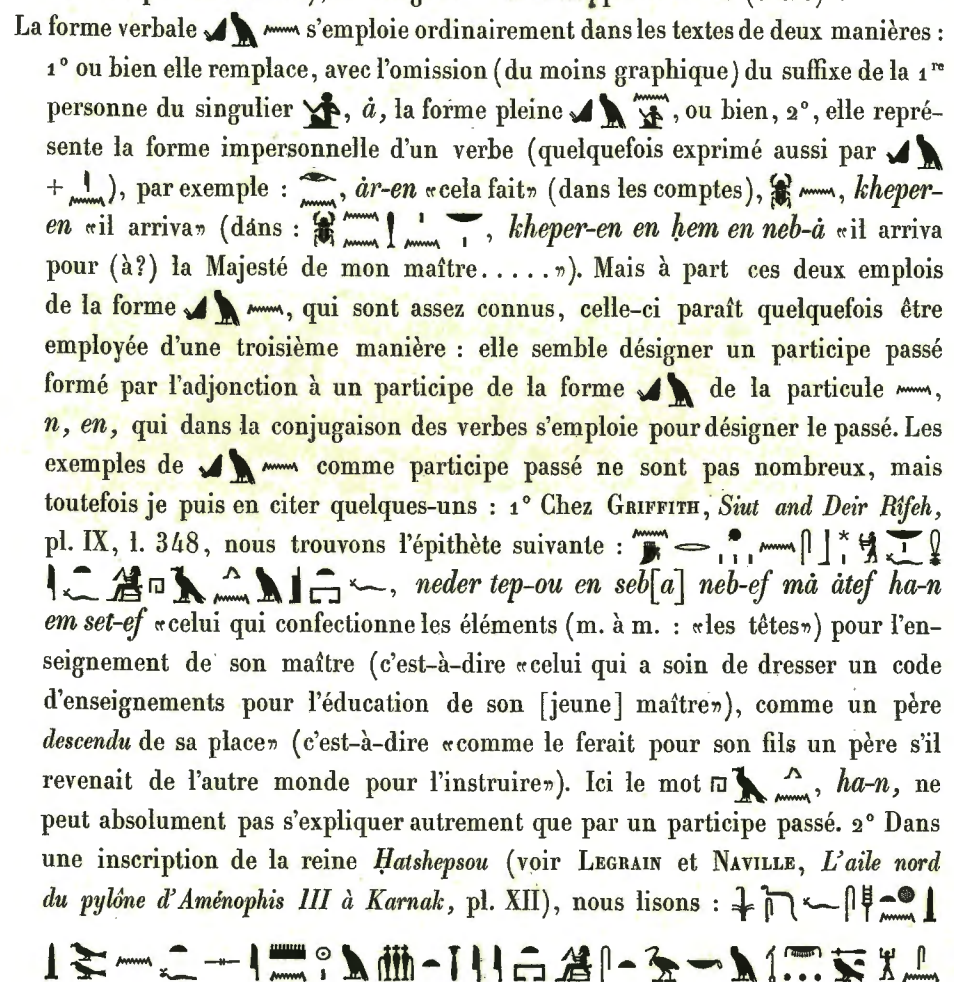 La forme verbale 𓄔𓅓𓈖 s'emploie ordinairement dans les textes de deux manières :
1° ou bien elle remplace, avec l'omission (du moins graphique) du suffixe de la 1re
personne du singulier 𓀀, ȧ, la forme pleine 𓄔𓅓𓈖𓀀, ou bien, 2°, elle repré-
sente la forme impersonnelle d'un verbe (quelquefois exprimé aussi par 𓄔𓅓
+ ), par exemple : 𓁹𓈖, ȧr-en «cela fait» (dans les comptes), 𓆣𓈖, kheper-
en «il arriva» (dans : , kheper-en en ḥem en neb-ȧ «il arriva
pour (à?) la Majesté de mon maître.....»). Mais à part ces deux emplois
de la forme 𓄔𓅓𓈖, qui sont assez connus, celle-ci paraît quelquefois être
employée d'une troisième manière : elle semble désigner un participe passé
formé par l'adjonction à un participe de la forme 𓄔𓅓 de la particule 𓈖,
n, en, qui dans la conjugaison des verbes s'emploie pour désigner le passé. Les
exemples de 𓄔𓅓𓈖 comme participe passé ne sont pas nombreux, mais
toutefois je puis en citer quelques-uns : 1° Chez GRIFFITH, Siut and Deir Rîfeh,
pl. IX, l. 348, nous trouvons l'épithète suivante :
, neder tep-ou en seb[a] neb-ef mȧ ȧtef ha-n
em set-ef «celui qui confectionne les éléments (m. à m. : «les têtes») pour l'en-
seignement de son maître (c'est-à-dire «celui qui a soin de dresser un code
d'enseignements pour l'éducation de son [jeune] maître»), comme un père
descendu de sa place» (c'est-à-dire «comme le ferait pour son fils un père s'il
revenait de l'autre monde pour l'instruire»). Ici le mot 𓉔𓅓𓂻𓈖, ha-n, ne
peut absolument pas s'expliquer autrement que par un participe passé. 2° Dans
une inscription de la reine Ḥatshepsou (voir LEGRAIN et NAVILLE, L'aile nord
du pylône d'Aménophis III à Karnak, pl. XII), nous lisons :